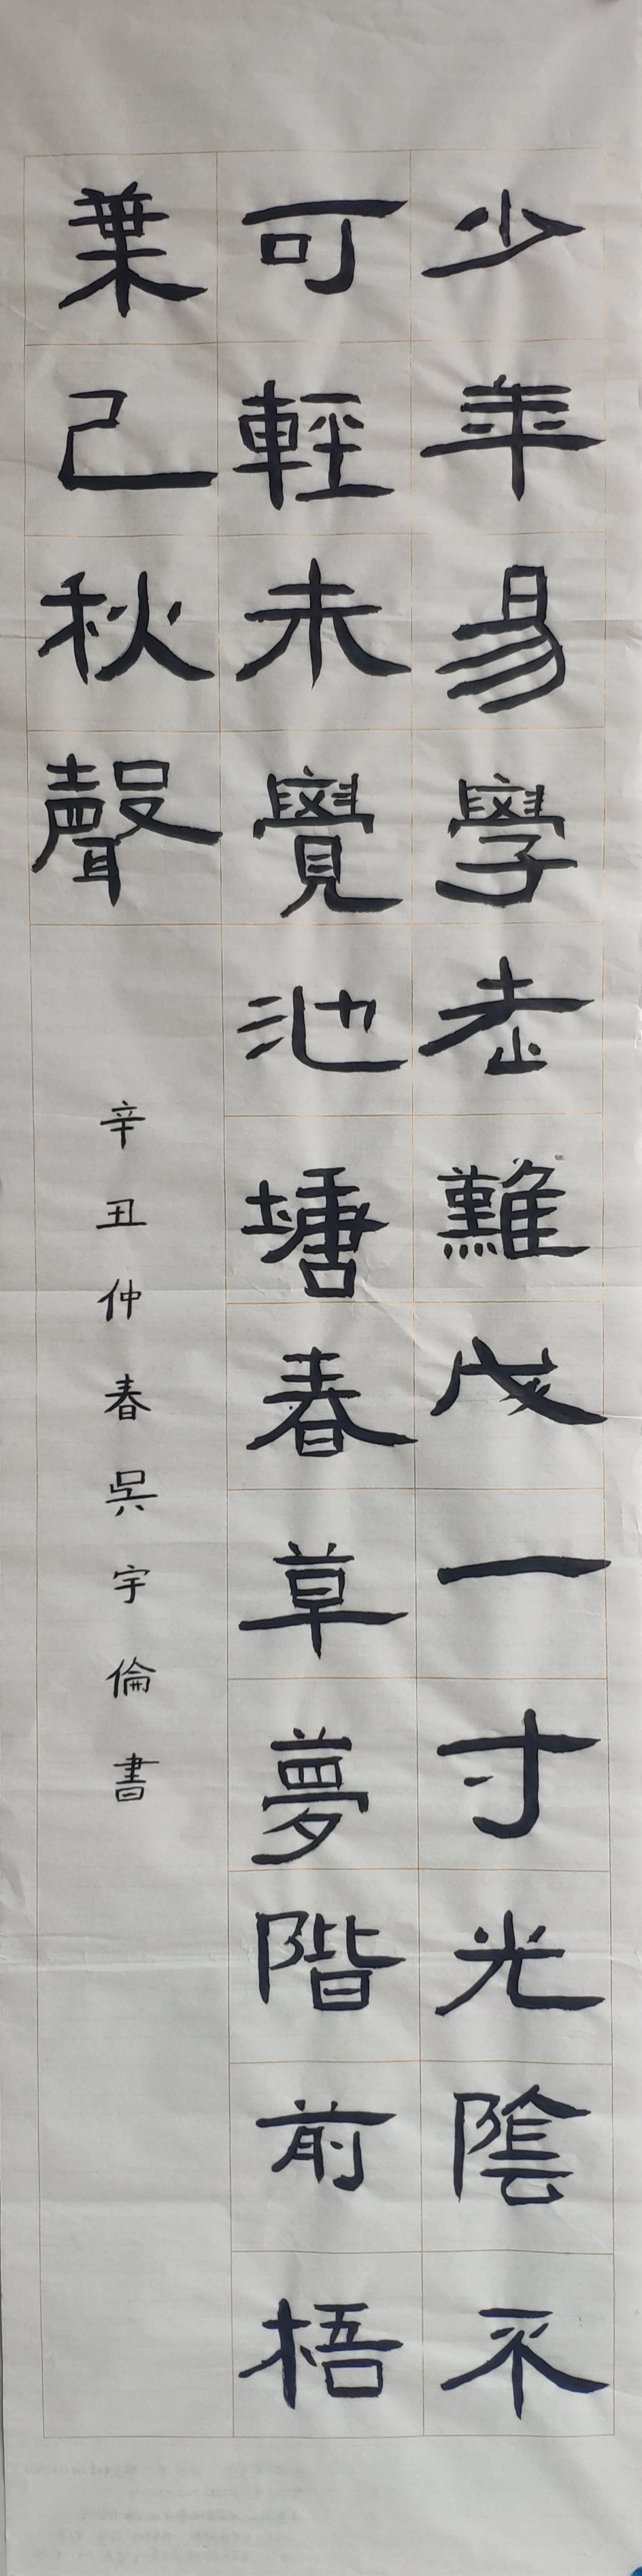 少年易學老難成一寸光陰不
可輕未覺池塘春草夢階前梧
葉已秋聲
辛丑仲春吳宇倫書